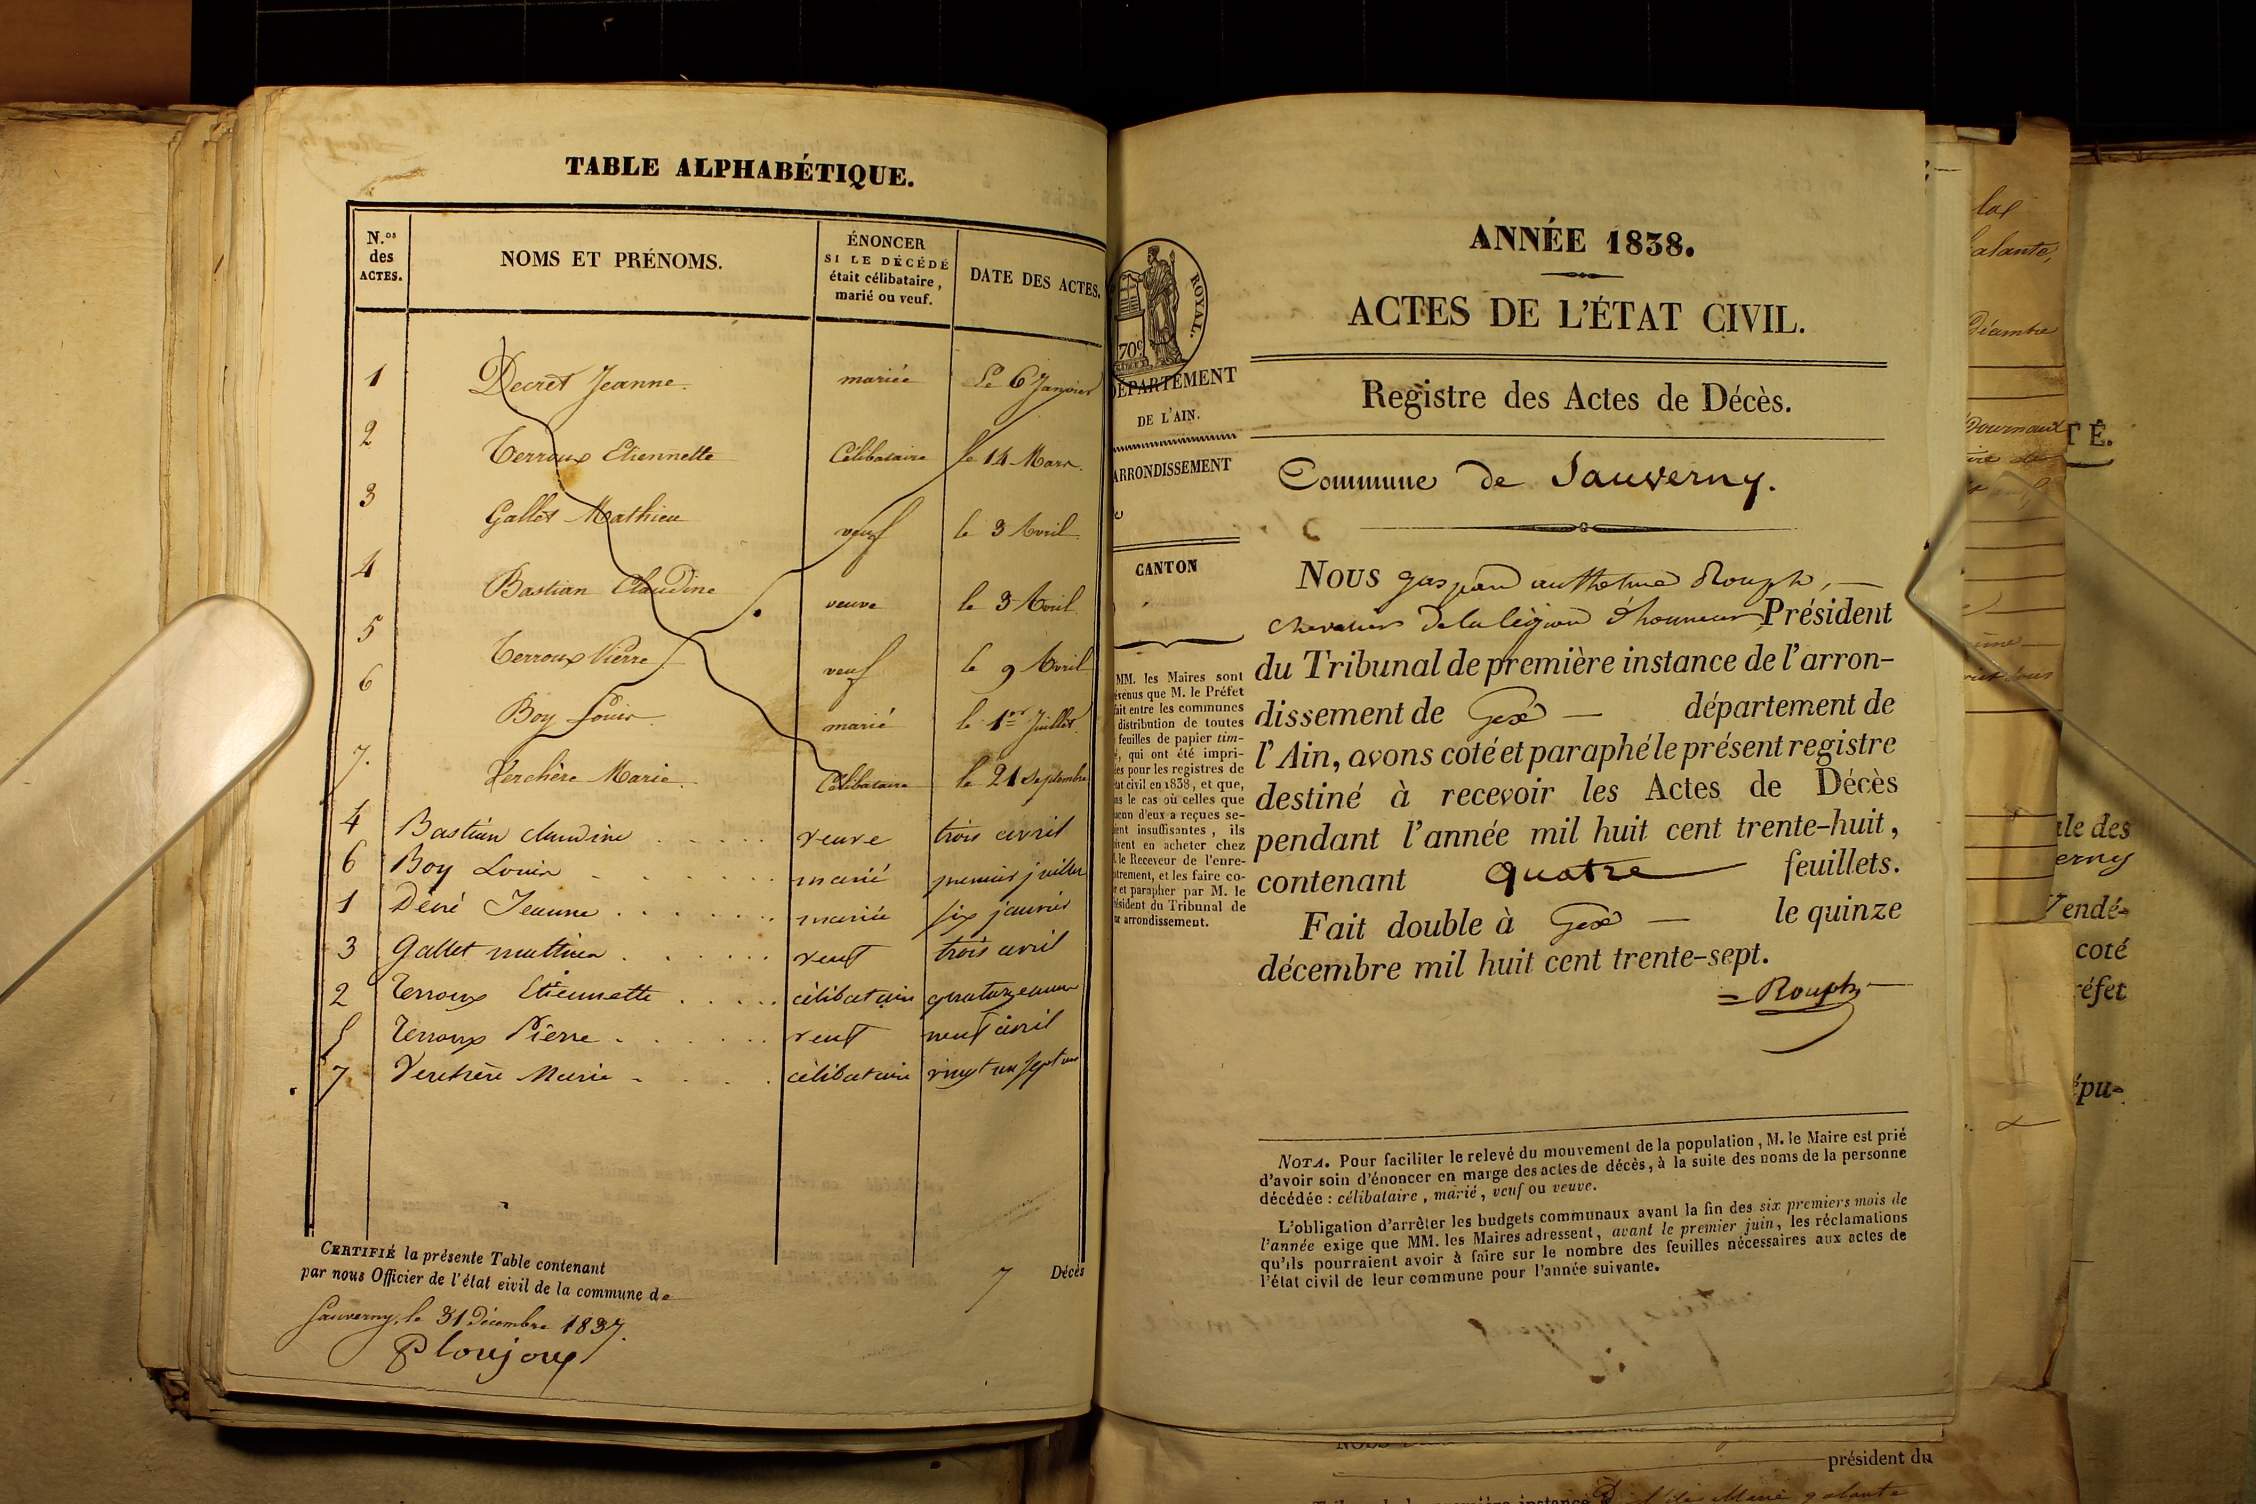 TABLE ALPHABÉTIQUE.
N.os des ACTES.
NOMS ET PRÉNOMS.
ÉNONCER
SI LE DÉCÉDÉ
était célibataire,
marié ou veuf.
DATE DES ACTES.
1 Decrèt Jeanne. mariée Le 6 Janvier
2 Terroux Etiennette Célibataire le 14 Mars.
3 Gallet Mathieu veuf le 3 Avril
4 Bastian Claudine veuve le 3 Avril
5 Terroux Pierre veuf le 9 Avril
6 Boy Louis marié le 1er Juillet
7. Verchère Marie. Célibataire le 21 septembre
4 Bastian claudine veuve trois avril
6 Boy Louis marié premier juillet
1 Décré Jeanne mariée six janvier
3 Gallet mathieu veuf trois avril
2 Terroux Etiennette célibataire quatorze mars
5 Terroux Pierre veuf neuf avril
7 Verchère Marie célibataire vingt un sept
CERTIFIÉ la présente Table contenant 7 Décès
par nous Officier de l'état eivil de la commune de
Sauverny, le 31 Décembre 1837.
Ploujoux
ROYAL.
70c
DÉPARTEMENT
DE L'AIN.
ARRONDISSEMENT
CANTON
MM. les Maires sont
que M. le Préfet
fait entre les communes
distribution de toutes
feuilles de papier tim-
, qui ont été impri-
pour les registres de
civil en 1838, et que,
le cas où celles que
d'eux a reçues se-
insuffisantes, ils
en acheter chez
le Receveur de l'enre-
, et les faire co-
et parapher par M. le
Président du Tribunal de
arrondissement.
ANNÉE 1838.
ACTES DE L'ÉTAT CIVIL.
Registre des Actes de Décès.
Commune de Sauverny.
NOUS gaspard anthelme Rouph,
chevalier de la légion d'honneur Président
du Tribunal de première instance de l'arron-
dissement de Gex département de
l'Ain, avons coté et paraphé le présent registre
destiné à recevoir les Actes de Décès
pendant l'année mil huit cent trente-huit,
contenant quatre feuillets.
Fait double à Gex le quinze
décembre mil huit cent trente-sept.
Rouph
NOTA. Pour faciliter le relevé du mouvement de la population, M. le Maire est prié
d'avoir soin d'énoncer en marge des actes de décès, à la suite des noms de la personne
décédée : célibataire, marié, veuf ou veuve.
L'obligation d'arrêter les budgets communaux avant la fin des six premiers mois de
l'année exige que MM. les Maires adressent, avant le premier juin, les réclamations
qu'ils pourraient avoir à faire sur le nombre des feuilles nécessaires aux actes de
l'état civil de leur commune pour l'année suivante.
TÉ.
Vendé-
coté
président du